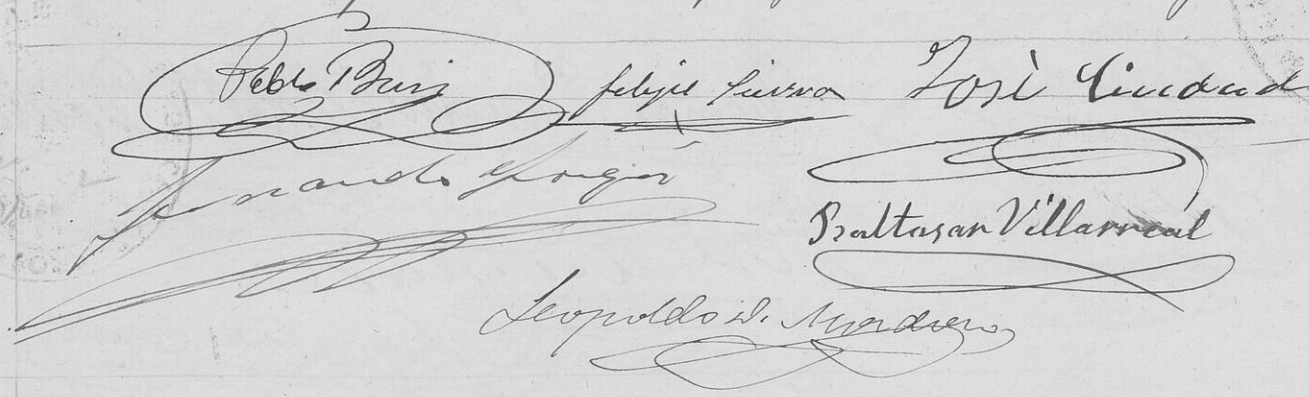 Pablo Ruiz Felipe Sierra José Ciudad
Fernando
Baltasar Villarreal
Leopoldo D.